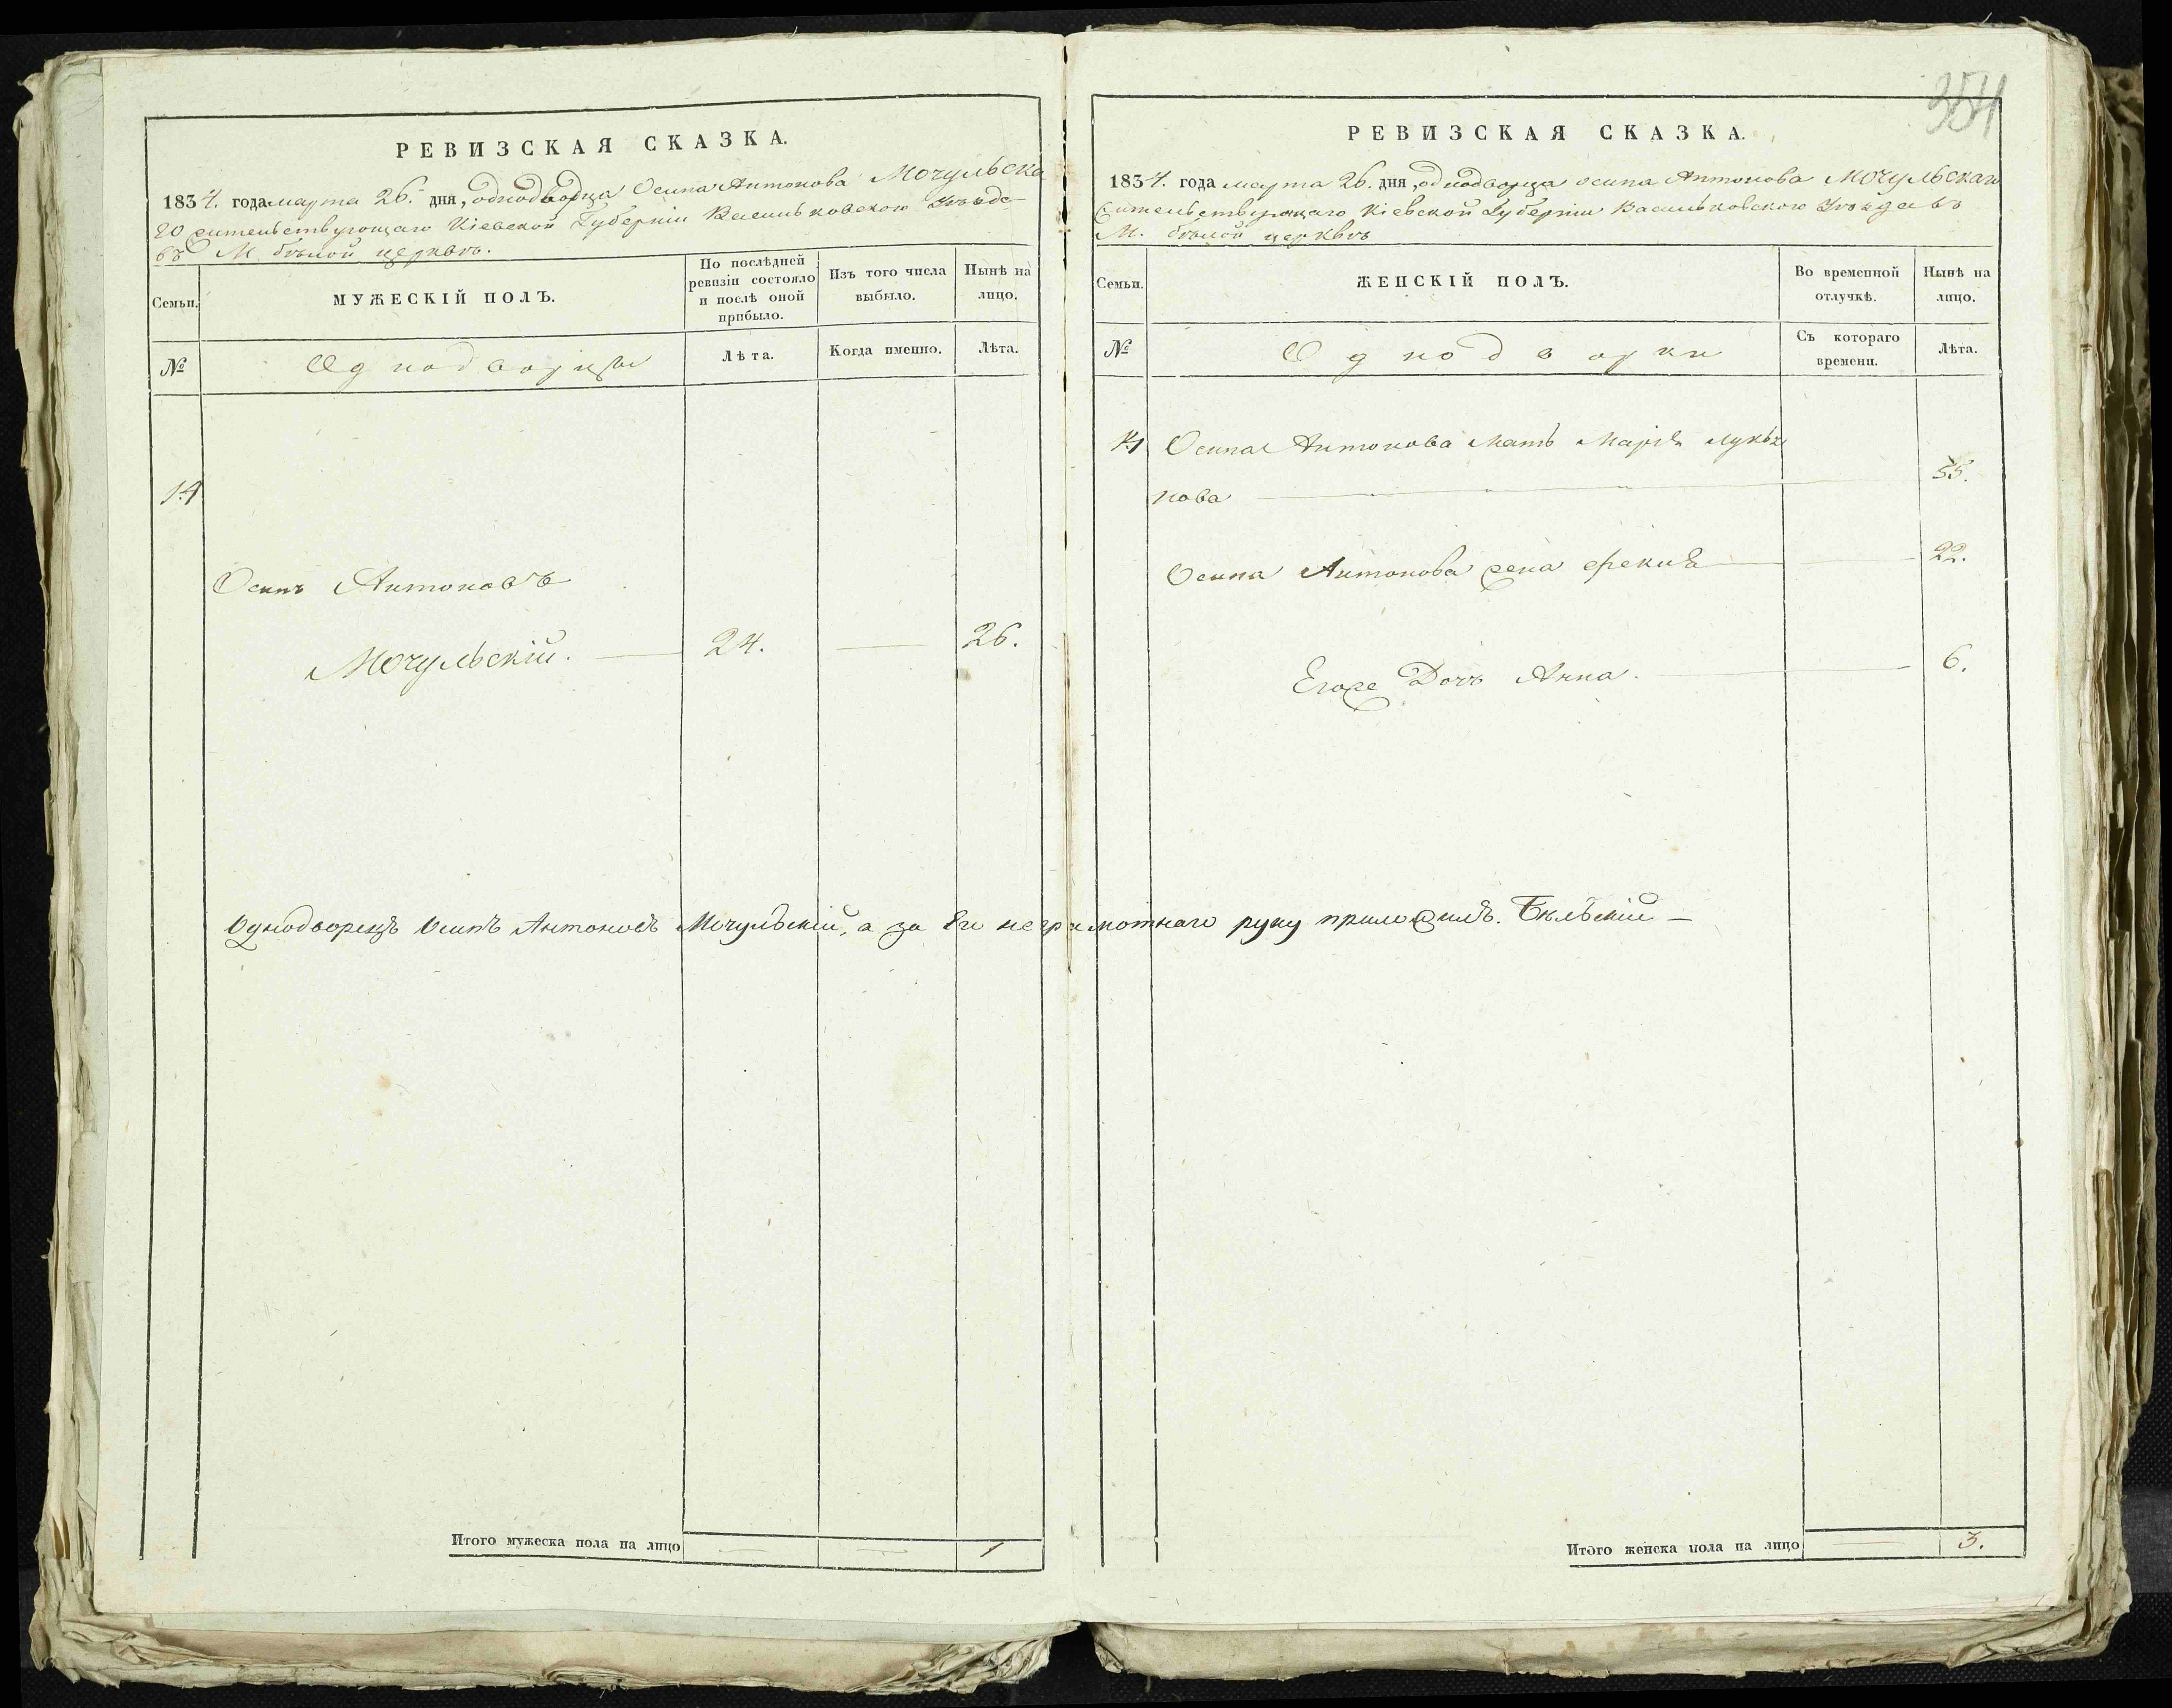 РЕВИЗСКАЯ СКАЗКА.
1834. года марта 26. дня, однодворца Осипа Антонова Мочульска
го жительствующаго Кіевской Губерніи Васильковского Уѣзда
въ М. бѣлой церквѣ.
Семьи.
МУЖЕСКІЙ ПОЛЪ.
По послѣдней ревизіи состояло и послѣ оной прибыло.
Изъ того числа выбыло.
Нынѣ на лицо.
№
Однодворцы
Лѣта.
Когда именно.
Лѣта.
14
Осипъ Антоновъ
Мочульскій. 24. — 26.
Однодворецъ Осипъ Антоновъ Мочульскій, а за Его неграмотнаго руку приложилъ. Бѣльскій —
Итого мужеска пола на лицо — — 1
354
РЕВИЗСКАЯ СКАЗКА.
1834. года марта 26. дня, однодворца осипа Антонова Мочульскаго
Жительствующаго Кіевской Губерніи Васильковского Уѣзда въ
М. бѣлой церквѣ
Семьи.
ЖЕНСКІЙ ПОЛЪ.
Во временной отлучкѣ.
Нынѣ на лицо.
№
Однодворки
Съ котораго времени.
Лѣта.
14 Осипа Антонова мать Марія лукья
нова — 55.
Осипа Антонова жена — 22.
Егоже Дочь Анна. — 6.
Итого женска пола на лицо — 3.